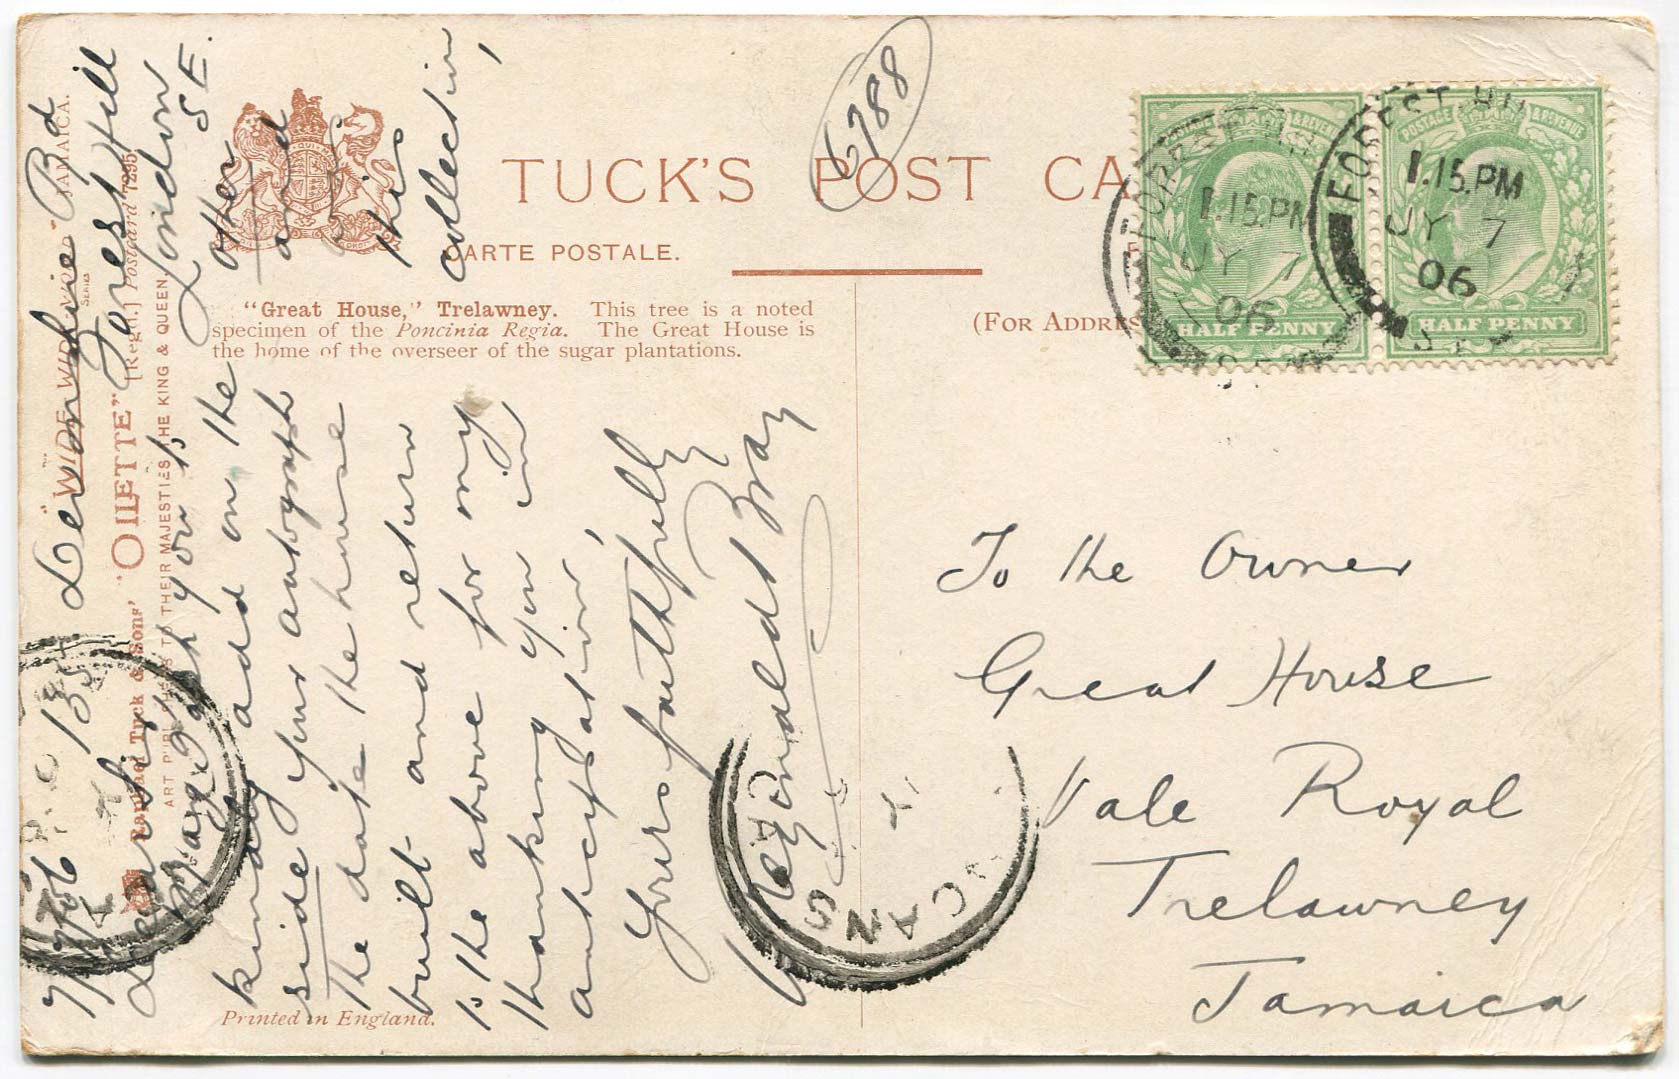 TUCK'S POST CA
CARTE POSTALE.
6788
FOREST HILL
1.15.PM
JY 7
06
FOREST HILL
1.15.PM
JY 7
06
POSTAGE & REVENUE
HALF PENNY
HALF PENNY
(FOR ADDRES
"Great House," Trelawney. This tree is a noted
specimen of the Poncinia Regia. The Great House is
the home of the overseer of the sugar plantations.
"WIDE WIDE WORLD" SERIES JAMAICA.
Raphael Tuck & Sons' "OILETTE" [Regd.] Postcard 7295
ART PUBLISHERS TO THEIR MAJESTIES THE KING & QUEEN.
Printed in England.
135 Devonshire Rd
7/7/06 Forest Hill
London
SE.
Dear Sir,
May I ask you to
kindly add on the other
side your autograph and
The date the house
built and return this
to the above for my collection,
thanking you in
anticipation,
Yours faithfully
Reginald Bray
To the Owner
Great House
Vale Royal
Trelawney
Jamaica